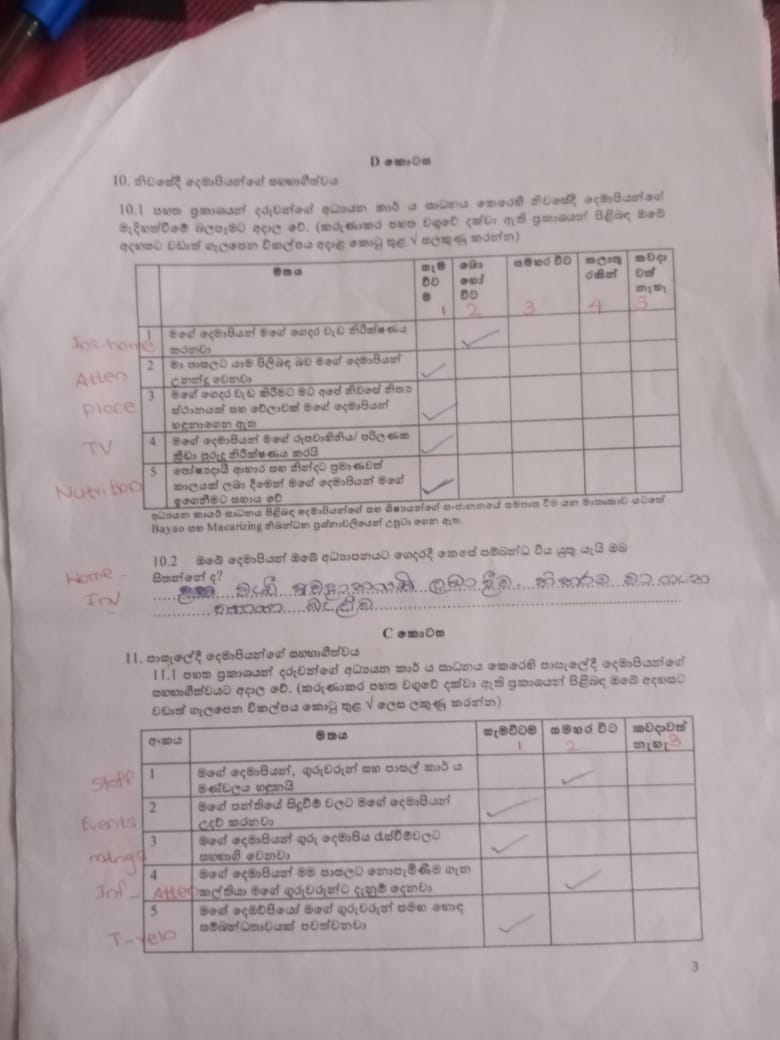 D කොටස
10. නිවසේදී දෙමාපියන්ගේ සහභාගීත්වය
10.1 පහත ප්‍රකාශයන් දරුවන්ගේ අධ්‍යයන කාර්ය සාධනය කෙරෙහි නිවසේදී දෙමාපියන්ගේ
මැදිහත්වීමේ බලපෑමට අදාල වේ. (කරුණාකර පහත වගුවේ දක්වා ඇති ප්‍රකාශයන් පිළිබඳ ඔබේ
අදහසට වඩාත් ගැලපෙන විකල්පය අදාළ කොටු තුළ √ සලකුණු කරන්න)
මතය සැම විටම බොහෝ විට සමහර විට කලාතුරකින් කවදාවත් නැහැ
1 2 3 4 5
Ins-home 1 මගේ දෙමාපියන් මගේ ගෙදර වැඩ නිරීක්ෂණය
කරනවා
Atten 2 මා පාසලට යාම පිලිබඳ බව මගේ දෙමාපියන්
උනන්දු වෙනවා
place 3 මගේ ගෙදර වැඩ කිරීමට මට අපේ නිවසේ නිත්‍ය
ස්ථානයක් සහ වේලාවක් මගේ දෙමාපියන්
හඳුනාගෙන ඇත
TV 4 මගේ දෙමාපියන් මගේ රූපවාහිනිය/ පරිගණක
ක්‍රීඩා පුරුදු නිරීක්ෂණය කරයි
Nutrition 5 පෝෂ්‍යදායී ආහාර සහ නින්දට ප්‍රමාණවත්
කාලයක් ලබා දීමෙන් මගේ දෙමාපියන් මගේ
ඉගෙනීමට සහාය වේ
අධ්‍යයන කාර්ය සාධනය පිළිබඳ දෙමාපියන්ගේ සහ ශිෂ්‍යයන්ගේ සංජානනයේ සමපාත වීම යන මාතෘකාව යටතේ
Bayao සහ Macarizing නිබන්ධන ප්‍රශ්නාවලියෙන් උපුටා ගෙන ඇත.
Home - 10.2 ඔබේ දෙමාපියන් ඔබේ අධ්‍යාපනයට ගෙදරදී කෙසේ සම්බන්ධ විය යුතු යැයි ඔබ
Inv සිතන්නේ ද?
ලබා දීම.
බැලීම
C කොටස
11. පාසැලේදී දෙමාපියන්ගේ සහභාගීත්වය
11.1 පහත ප්‍රකාශයන් දරුවන්ගේ අධ්‍යයන කාර්ය සාධනය කෙරෙහි පාසැලේදී දෙමාපියන්ගේ
සහභාගීත්වයට අදාල වේ. (කරුණාකර පහත වගුවේ දක්වා ඇති ප්‍රකාශයන් පිළිබඳ ඔබේ අදහසට
වඩාත් ගැලපෙන විකල්පය කොටු තුළ √ ලෙස ලකුණු කරන්න)
අංකය මතය සැමවිටම සමහර විට කවදාවත් නැහැ
1 2 3
Staff 1 මගේ දෙමාපියන්, ගුරුවරුන් සහ පාසල් කාර්ය
මණ්ඩලය හඳුනයි
Events 2 මගේ පන්තියේ සිදුවීම් වලට මගේ දෙමාපියන්
උදව් කරනවා
mtngs 3 මගේ දෙමාපියන් ගුරු දෙමාපිය රැස්වීම්වලට
සහභාගී වෙනවා
Inf - Atten 4 මගේ දෙමාපියන් මම පාසලට නොපැමිණීම ගැන
කල්තියා මගේ ගුරුවරුන්ට දැනුම් දෙනවා
T-rela 5 මගේ දෙමව්පියෝ මගේ ගුරුවරුන් සමඟ හොඳ
සම්බන්ධතාවයක් පවත්වනවා
3